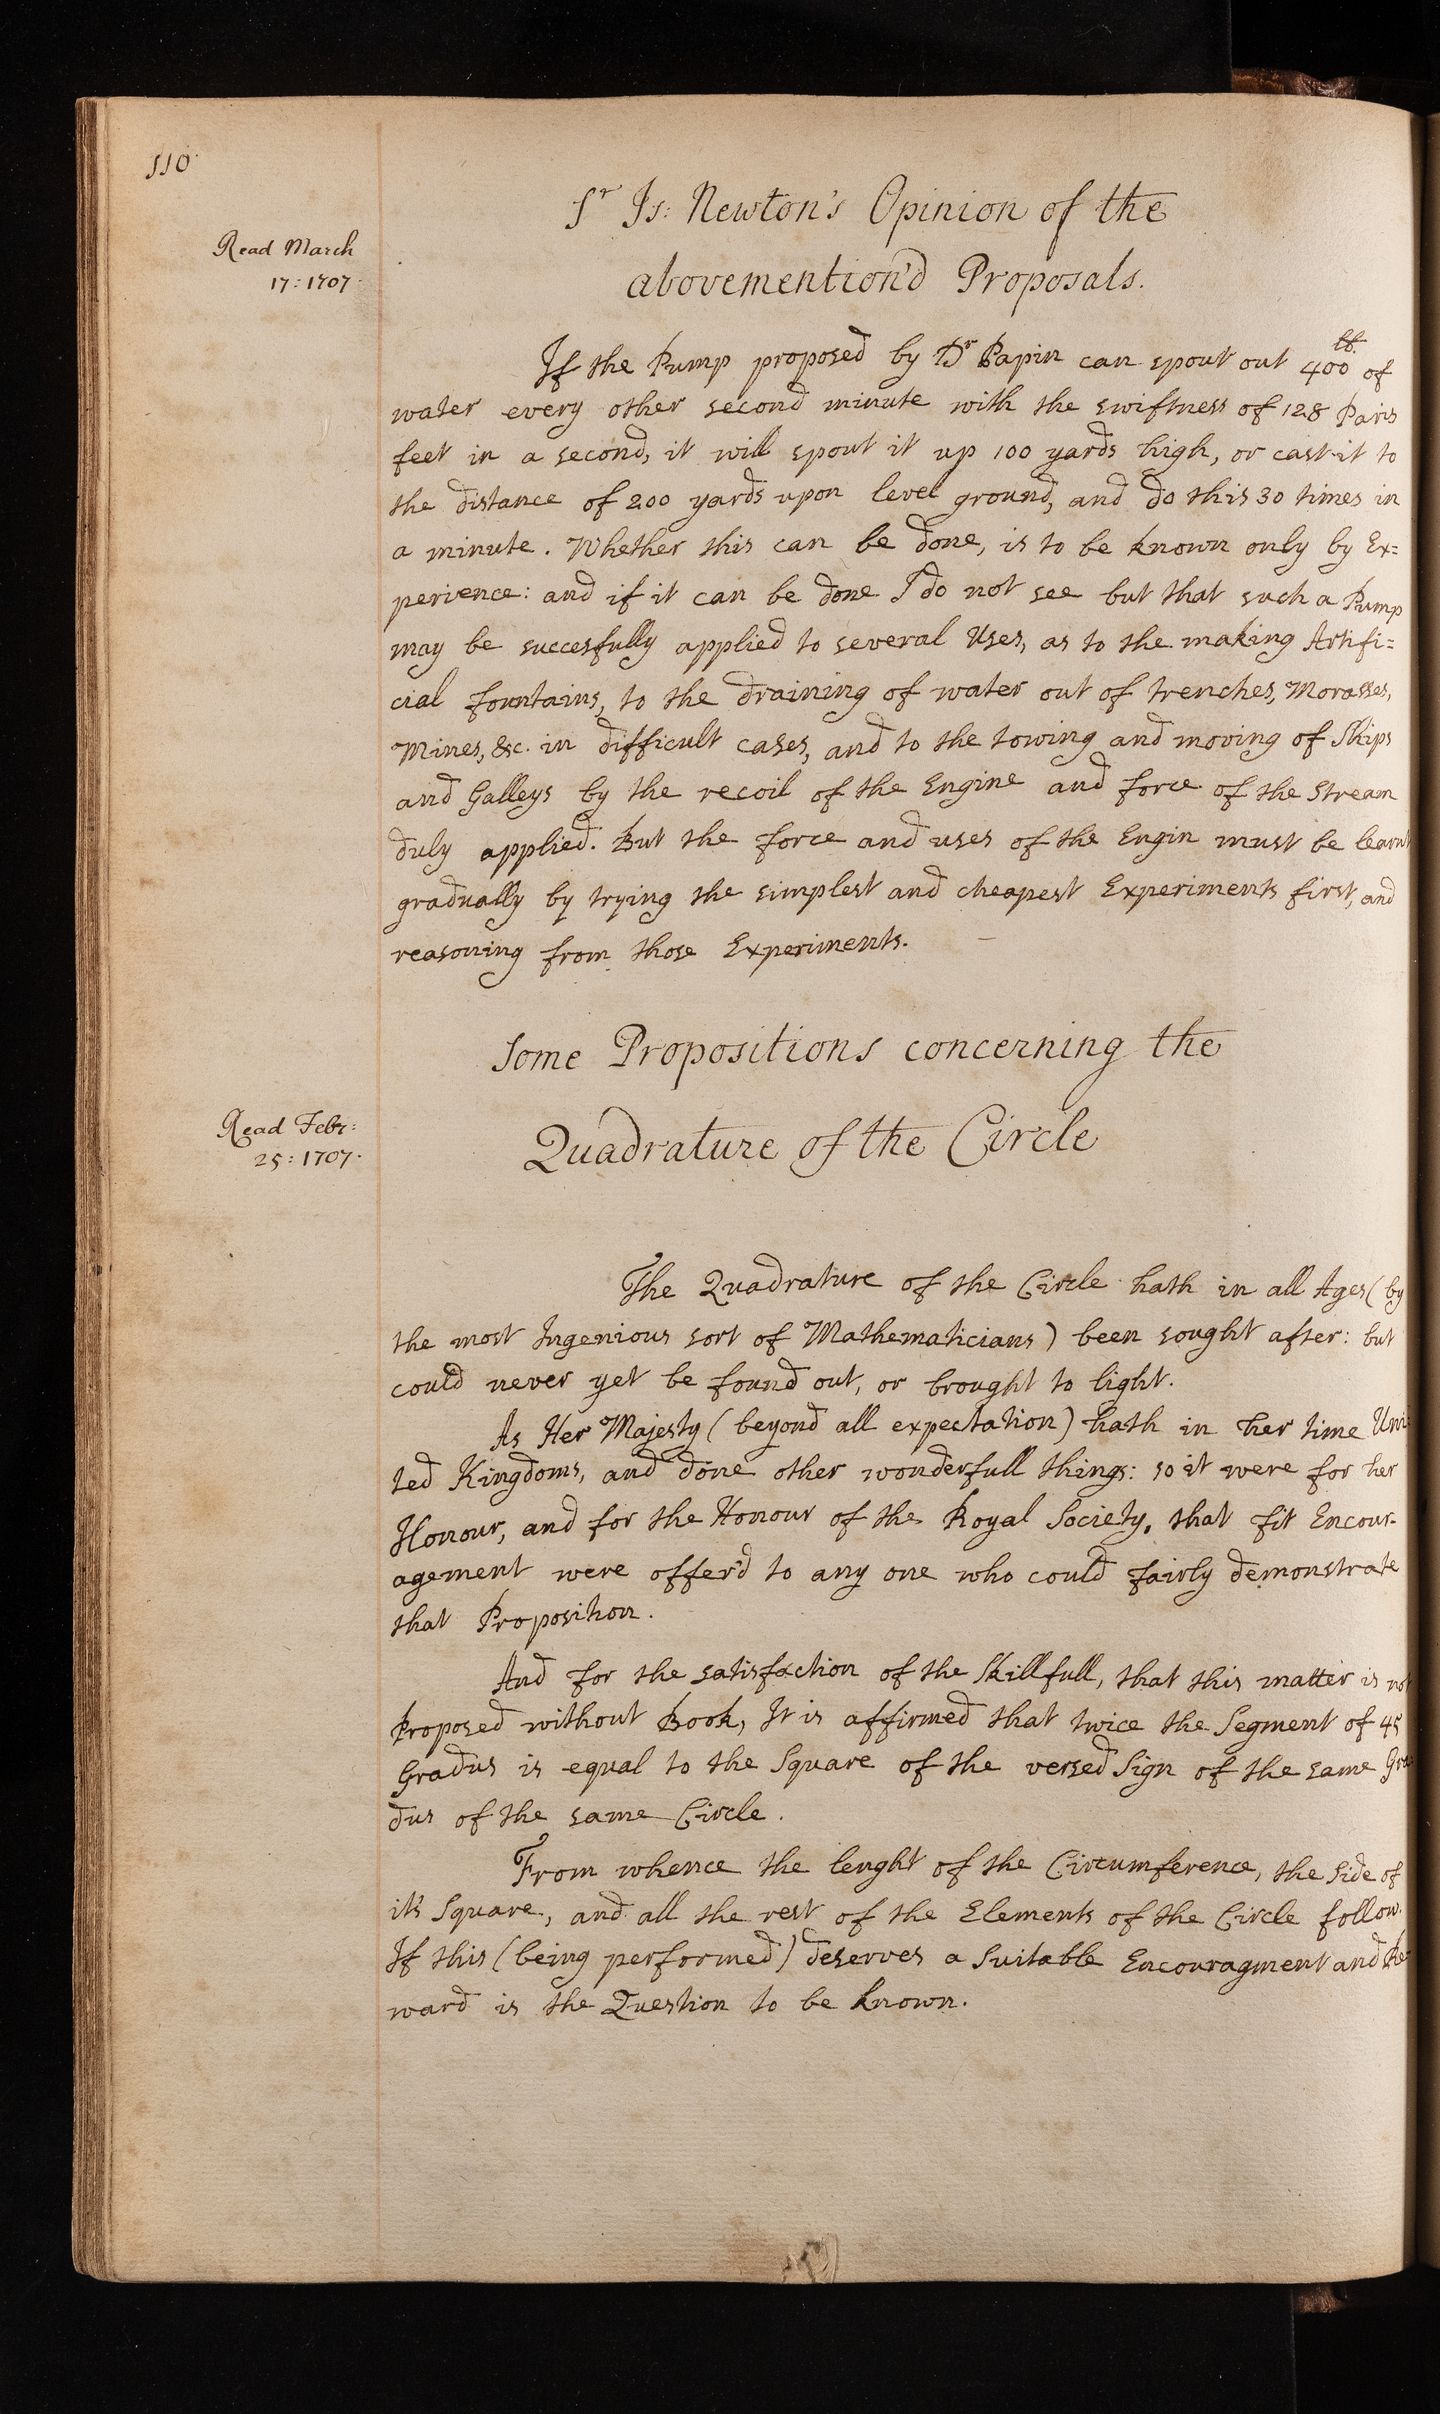 110
Sr Is: Newton's Opinion of the
abovemention'd Proposals.
Read March
17: 1707.
If the Pump proposed by Dr Papin can spout out 400 lb. of
water every other second minute with the swiftness of 128 Paris
feet in a second, it will spout it up 100 yards high, or cast it to
the distance of 200 yards upon level ground, and do this 30 times in
a minute. Whether this can be done, is to be known only by Ex=
perience: and if it can be done I do not see but that such a Pump
may be succesfully applied to several Uses, as to the making Artifi=
cial fountains, to the draining of water out of trenches, Morasses,
Mines, &c. in difficult cases, and to the towing and moving of Ships
and Galleys by the recoil of the Engine and force of the Stream
duly applied. But the force and uses of the Engin must be learnt
gradually by trying the simplest and cheapest Experiments first, and
reasoning from those Experiments.
Some Propositions concerning the
Quadrature of the Circle
Read Febr:
25: 1707.
The Quadrature of the Circle hath in all Ages (by
the most Ingenious sort of Mathematicians) been sought after: but
could never yet be found out, or brought to light.
As Her Majesty (beyond all expectation) hath in her time Uni
ted Kingdoms, and done other wonderfull things: so it were for her
Honour, and for the Honour of the Royal Society, that fit Encour-
agement were offer'd to any one who could fairly demonstrate
that Proposition.
And for the satisfaction of the Skillfull, that this matter is not
Proposed without Book, It is affirmed that twice the Segment of 45
Gradus is equal to the Square of the versed Sign of the same Gra
dus of the same Circle.
From whence the lenght of the Circumference, the Side of
its Square, and all the rest of the Elements of the Circle follow.
If this (being performed) deserves a Suitable Encouragment and Re
ward is the Question to be known.